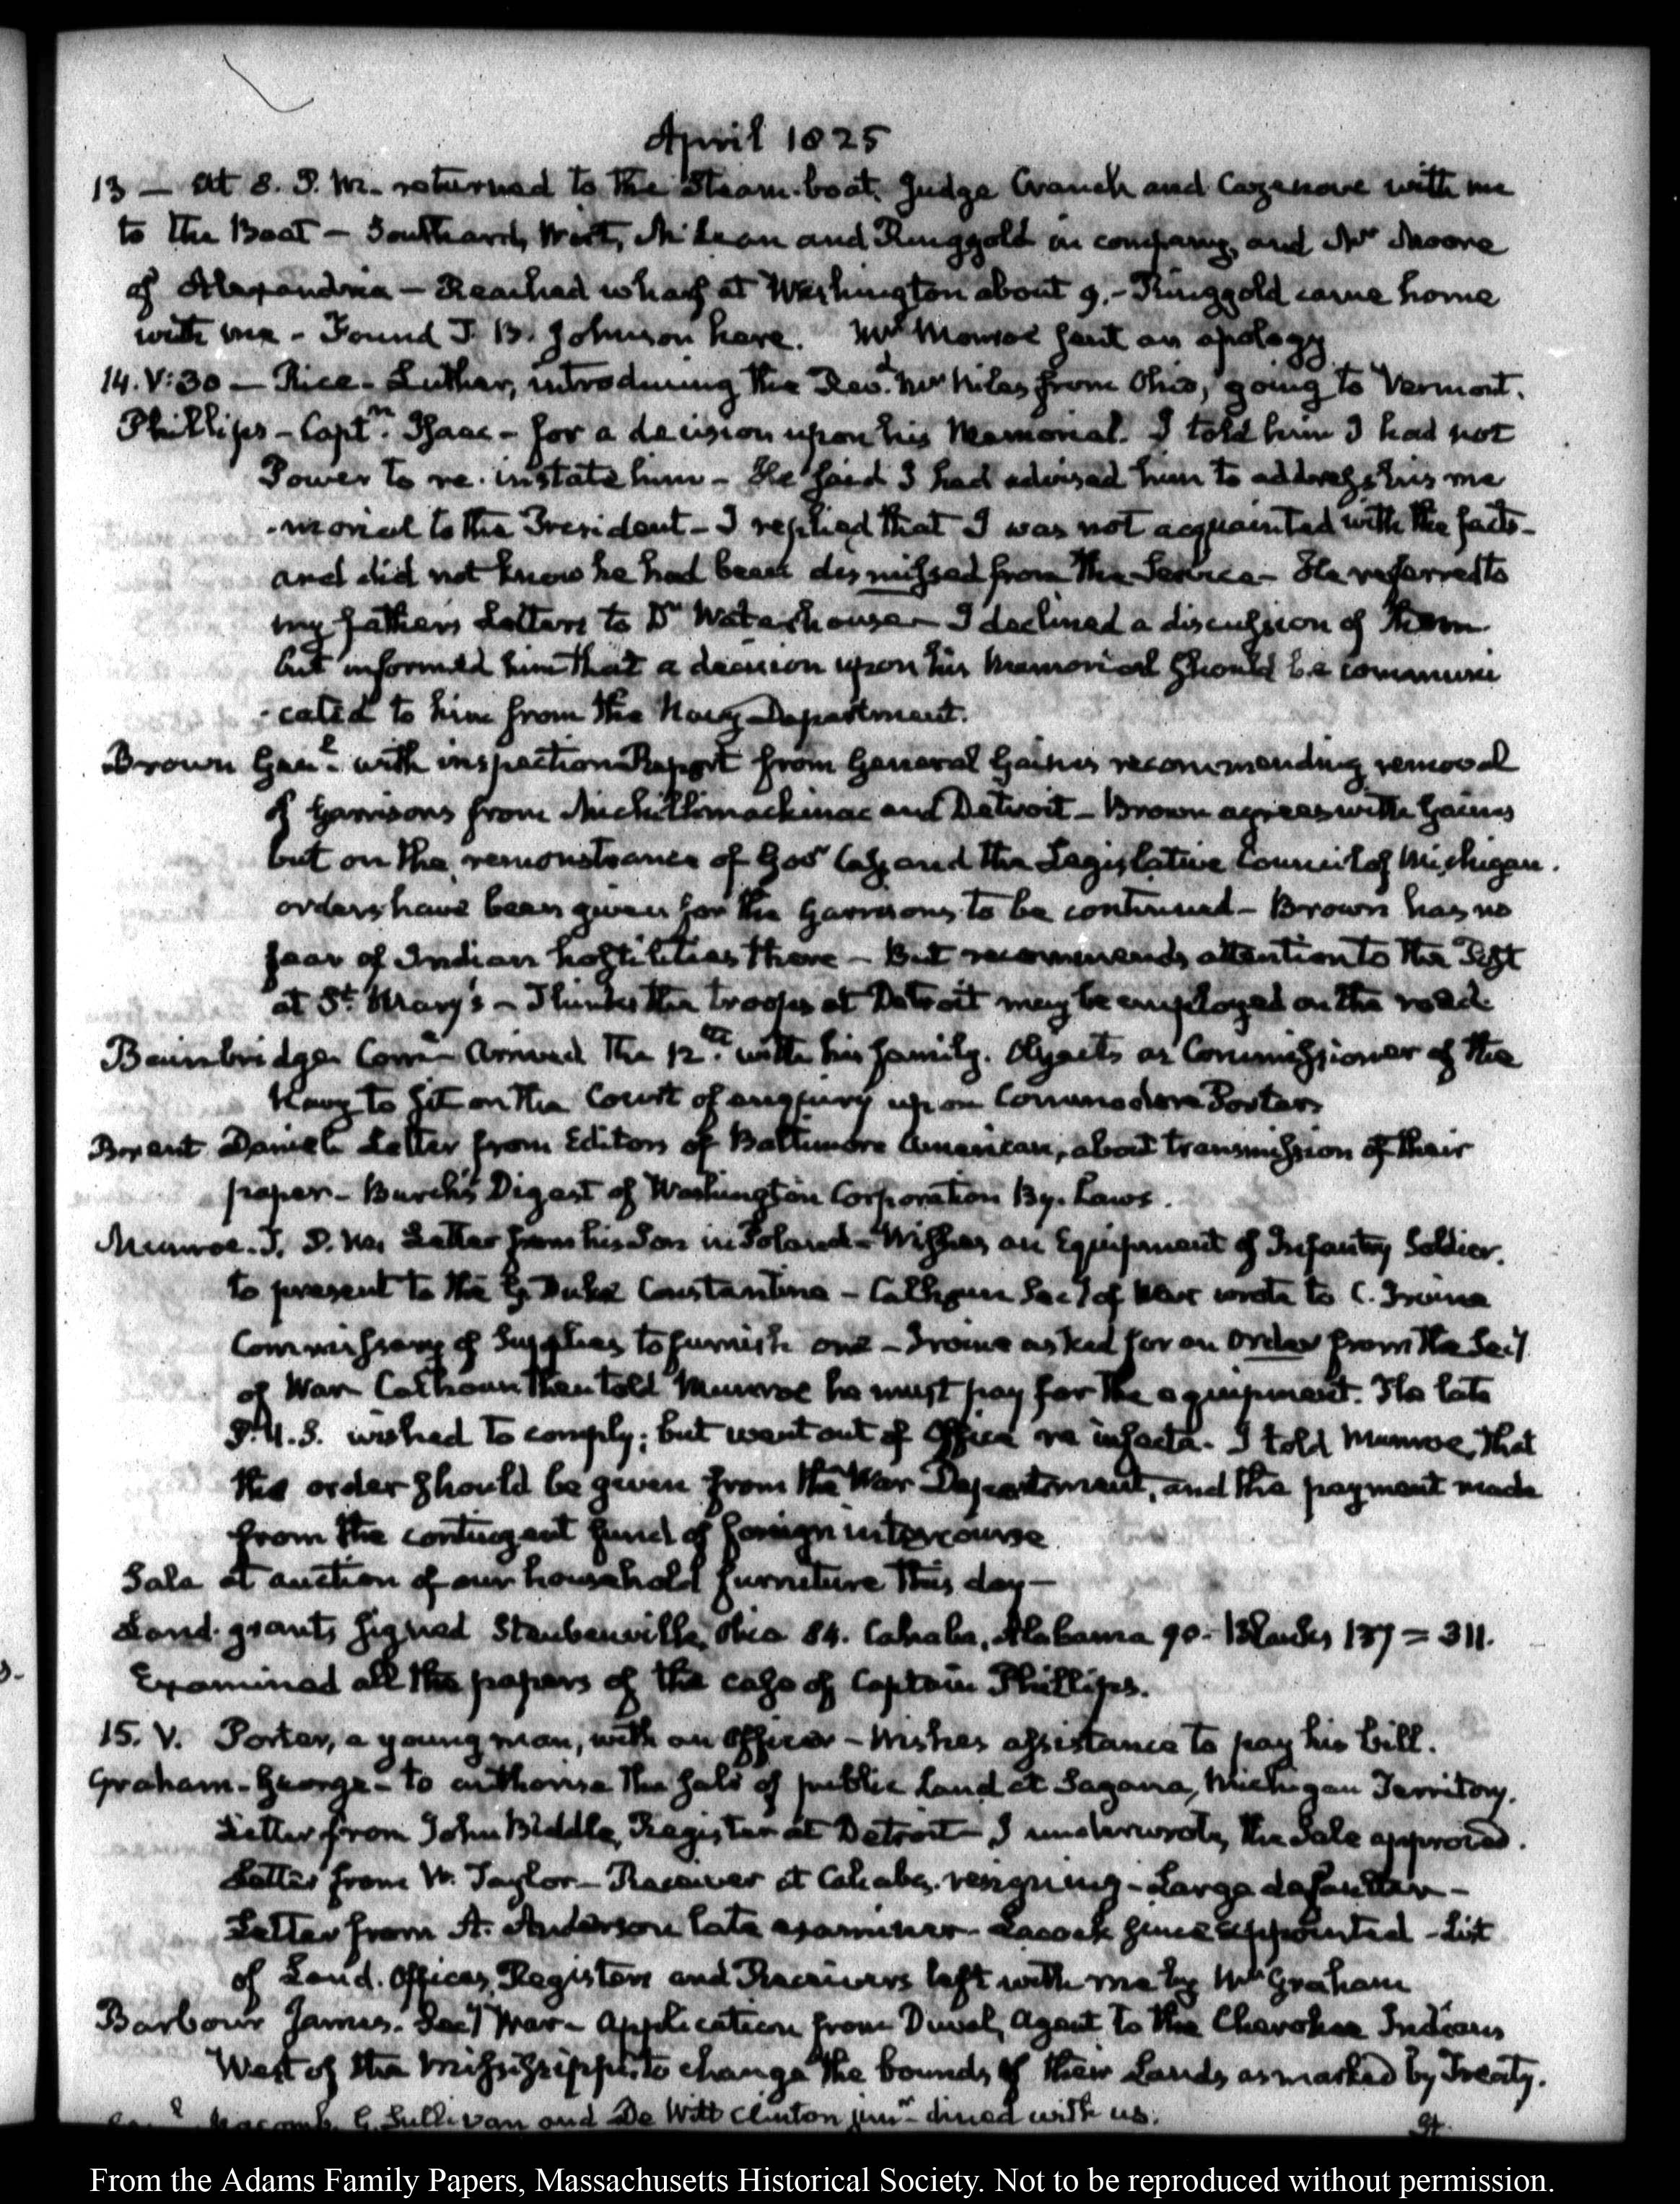 April 1825
13 — At 8. P.M. returned to the Steam-boat. Judge Cranch and Cazenove with me
to the Boat — Southard, Wirt, McLean and Ringgold in company, and Mr Moore
of Alexandria — Reached wharf at Washington about 9. — Ringgold came home
with me — Found T. B. Johnson here. Mr Monroe sent an apology
14. V:30 — Rice - Luther, introducing the Revd. Mr Niles from Ohio, going to Vermont.
Phillips — Captn. Isaac — for a decision upon his Memorial. I told him I had not
Power to re-instate him — He said I had advised him to address his me
-morial to the President — I replied that I was not acquainted with the facts —
and did not know he had been dismissed from the Service — He referred to
my father's Letters to Dr Waterhouse — I declined a discussion of them
but informed him that a decision upon his Memorial should be communi
-cated to him from the Navy Department.
Brown Genl. with inspection Report from General Gaines recommending removal
of Garrisons from Michillimackinac and Detroit — Brown agrees with Gaines
but on the remonstrance of Govr Cass and the Legislative Council of Michigan.
orders have been given for the Garrisons to be continued — Brown has no
fear of Indian hostilities there — But recommends attention to the Post
at St. Mary's — Thinks the troops at Detroit may be employed on the road.
Bainbridge Comr. Arrived the 12th. with his family. Objects as Commissioner of the
Navy to sit on the Court of enquiry upon Commodore Porter
Brent Daniel. Letter from Editors of Baltimore American, about transmission of their
paper — Burch's Digest of Washington Corporation By-Laws.
Munroe. T. P. M. Letter from his Son in Poland — Wishes an Equipment of Infantry Soldier.
to present to the G. Duke Constantine — Calhoun Secy of War wrote to C. Irvine
Commissary of Supplies to furnish one — Irvine asked for an order from the Secy
of War Calhoun then told Munroe he must pay for the equipment. The late
P.U.S. wished to comply; but went out of Office re infecta. I told Munroe, that
the order should be given from the War Department, and the payment made
from the contingent fund of foreign intercourse
Sale at auction of our household furniture this day —
Land-grants signed Steubenville, Ohio 84. Cahaba, Alabama 90. Blanks 137 = 311.
Examined all the papers of the case of Captain Phillips.
15. V. Porter, a young man, with an Officer — Wishes assistance to pay his bill.
Graham - George — to authorise the sale of public Land at Sagana, Michigan Territory.
Letter from John Biddle, Register at Detroit — I underwrote, the Sale approved.
Letter from W. Taylor — Receiver at Cahaba. resigning — Large defaulter —
Letter from A. Anderson late examiner — Lacock since appointed — List
of Land. Offices, Registers and Receivers left with me by Mr Graham
Barbour James. Secy War — Application from Duval, Agent to the Cherokee Indians
West of the Mississippi, to change the bounds of their Lands as marked by Treaty.
Macomb, G. Sullivan and De Witt Clinton junr. dined with us.
From the Adams Family Papers, Massachusetts Historical Society. Not to be reproduced without permission.